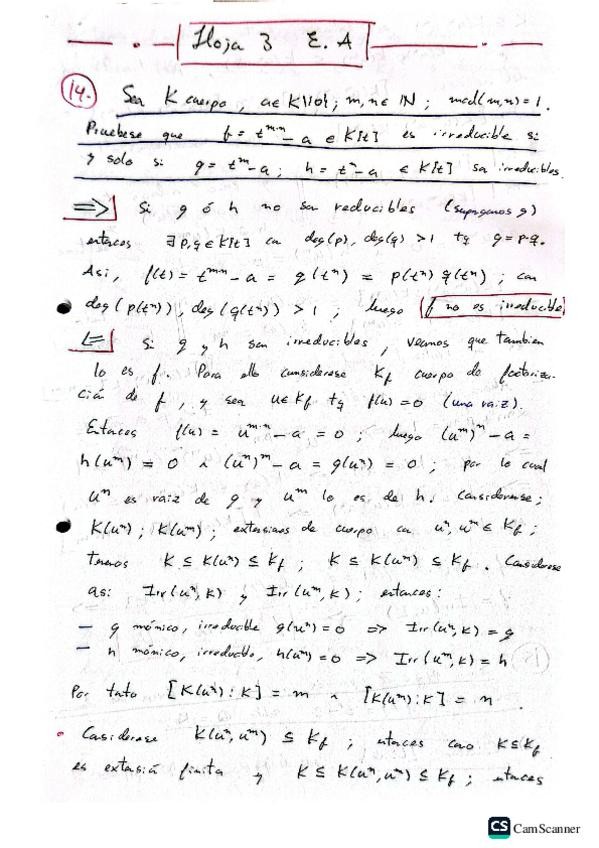 Hoja 3 E.A
14. Sea K cuerpo, a∈K\{0}; m,n∈ℕ; mcd(m,n)=1.
Pruebese que f = t^{m·n} - a ∈ K[t] es irreducible si
y solo si g = t^m - a; h = t^n - a ∈ K[t] son irreducibles.
=>| Si g ó h no son reducibles (supongamos g)
entonces ∃p,q∈K[t] con deg(p), deg(q) > 1 tq g=p·q.
Asi, f(t) = t^{m·n} - a = g(t^n) = p(t^n) q(t^n); con
deg(p(t^n)), deg(q(t^n)) > 1; luego f no es irreducible
<=| Si g y h son irreducibles, veamos que tambien
lo es f. Para ello considerese K_f cuerpo de factoriza-
ción de f, y sea u∈K_f tq f(u)=0 (una raiz).
Entonces f(u) = u^{m·n} - a = 0; luego (u^m)^n - a =
h(u^m) = 0 ∧ (u^n)^m - a = g(u^n) = 0; por lo cual
u^n es raiz de g y u^m lo es de h. Considerense;
K(u^n); K(u^m); extensiones de cuerpo con u^n, u^m ∈ K_f;
tenemos K ≤ K(u^n) ≤ K_f; K ≤ K(u^m) ≤ K_f. Considerese
asi Irr(u^n, K) y Irr(u^m, K); entonces:
— g mónico, irreducible g(u^n)=0 => Irr(u^n, K) = g
— h mónico, irreducible, h(u^m)=0 => Irr(u^m, K) = h
Por tanto [K(u^n):K] = m ∧ [K(u^m):K] = n.
• Considerese K(u^n, u^m) ≤ K_f; entonces como K≤K_f
es extensión finita y K ≤ K(u^n, u^m) ≤ K_f; entonces
CS CamScanner